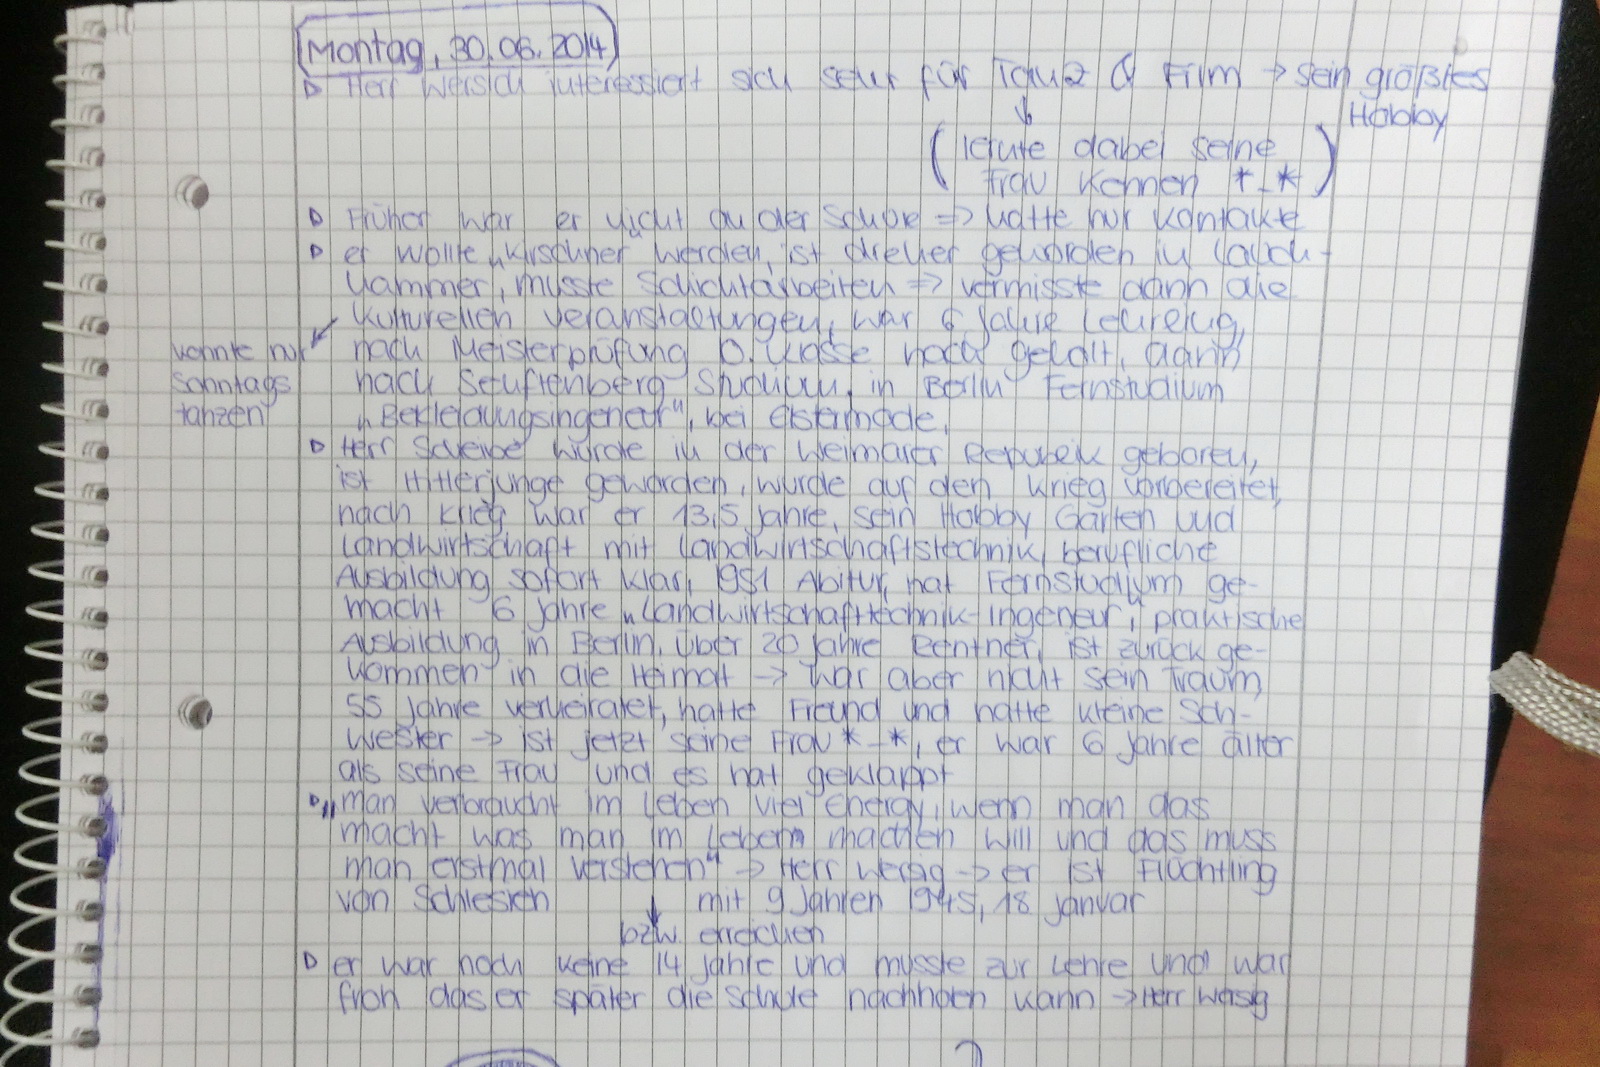 Montag, 30.06.2014
Herr Wersich interessiert sich sehr für Tanz & Film → sein größtes
Hobby
(lernte dabei seine
Frau kennen *_*)
Früher war er nicht an der Schule => hatte nur Kontakte
er wollte „Kirschner" werden, ist dreher geworden in Lauch-
hammer, musste Schichtarbeiten => vermisste dann die
kulturellen Veranstaltungen, war 6 Jahre
konnte nur
sonntags
tanzen
nach Meisterprüfung 10. Klasse nach geholt, dann
nach Senftenberg Studium, in Berlin Fernstudium
„Bekleidungsingeneur", bei Elstermode.
Herr Scheibe wurde in der Weimarer Republik geboren,
ist Hitlerjunge geworden, wurde auf den Krieg vorbereitet,
nach Krieg war er 13,5 Jahre, sein Hobby Garten und
Landwirtschaft mit Landwirtschaftstechnik, berufliche
Ausbildung sofort klar, 1951 Abitur, hat Fernstudium ge-
macht 6 Jahre „Landwirtschafttechnik-Ingeneur", praktische
Ausbildung in Berlin, über 20 Jahre Rentner, ist zurück ge-
kommen in die Heimat → war aber nicht sein Traum,
55 Jahre verheiratet, hatte Freund und hatte kleine Sch-
wester → ist jetzt seine Frau *_*, er war 6 Jahre älter
als seine Frau und es hat geklappt
„man verbraucht im Leben viel Energy, wenn man das
macht was man im Leben machen will und das muss
man erstmal verstehen" → Herr Wersig → er ist Flüchtling
von Schlesien mit 9 Jahren 1945, 18 Januar
bzw. erreichen
er war noch keine 14 Jahre und musste zur Lehre und war
froh das er später die Schule nachholen kann → Herr Wersig